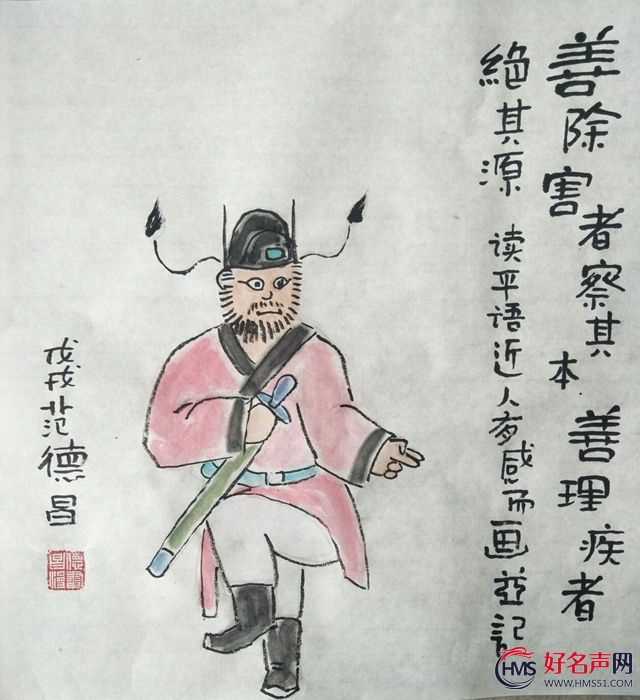 善除害者察其本善理疾者
絕其源
读平语近人有感而画並記
戊戌范德昌
HMS
好名声网
WWW.HMS51.COM